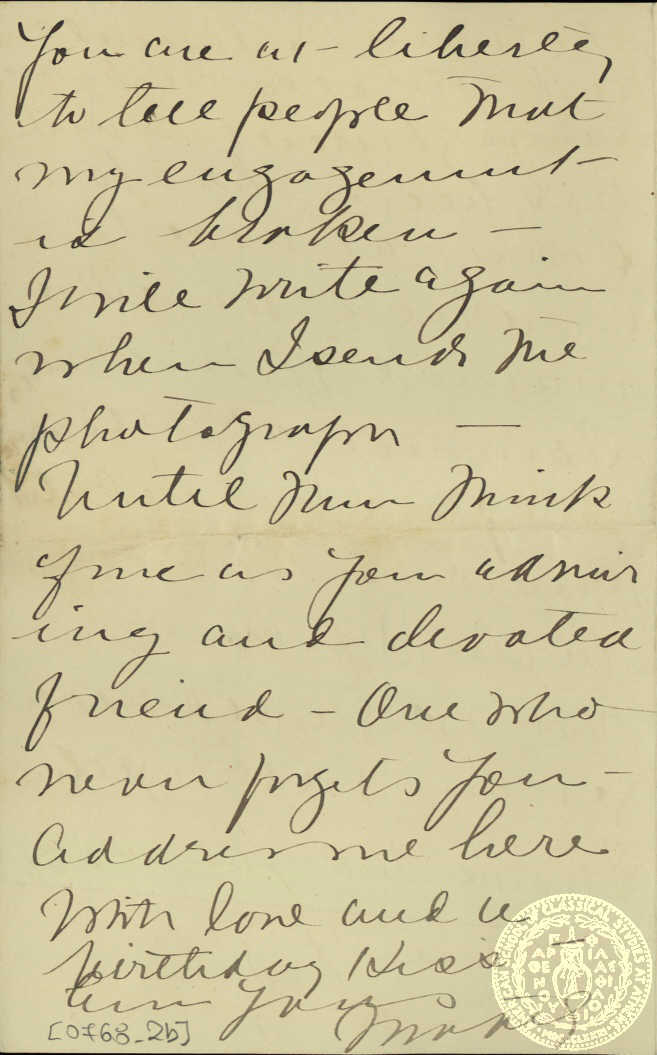 You are at liberty
to tell people that
my engagement
is broken —
I will write again
when I send the
photograph —
Until then think
of me as your admir
ing and devoted
friend — One who
never forgets you —
Address me here
With love and a
birthday kiss —
Ever yours
[0768_2b]